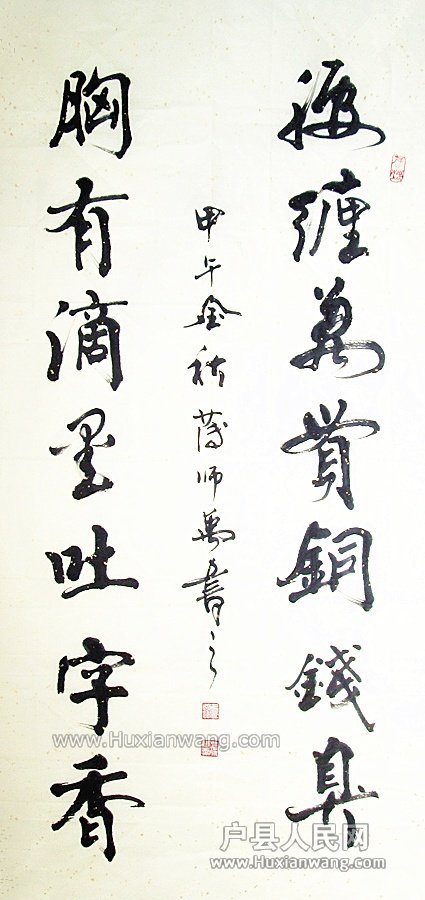 腰缠万贯铜钱臭
胸有滴墨吐字香
甲午金秋薄师禹书之
www.Huxianwang.com
户县人民网
www.Huxianwang.com